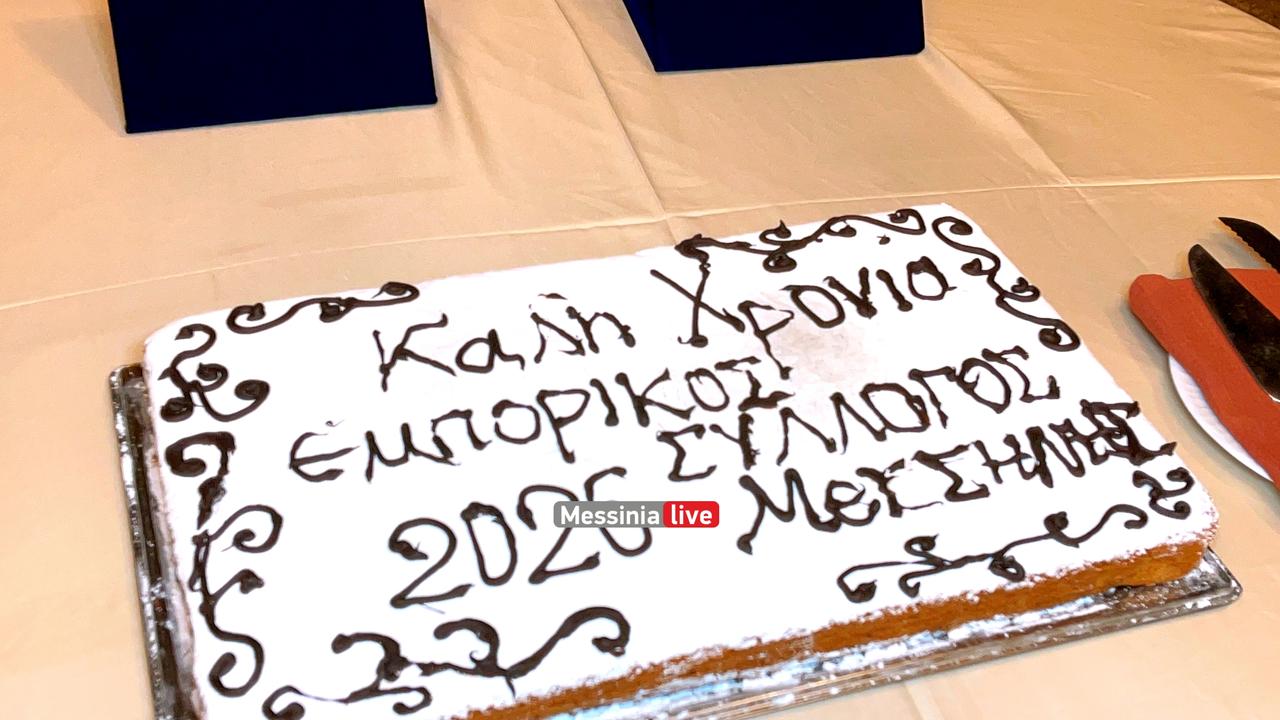 Καλη Χρονια
Εμπορικος ΣΥΛΛΟΓΟΣ
2026 ΜεΣΣΗΝΗΣ
Messinia live